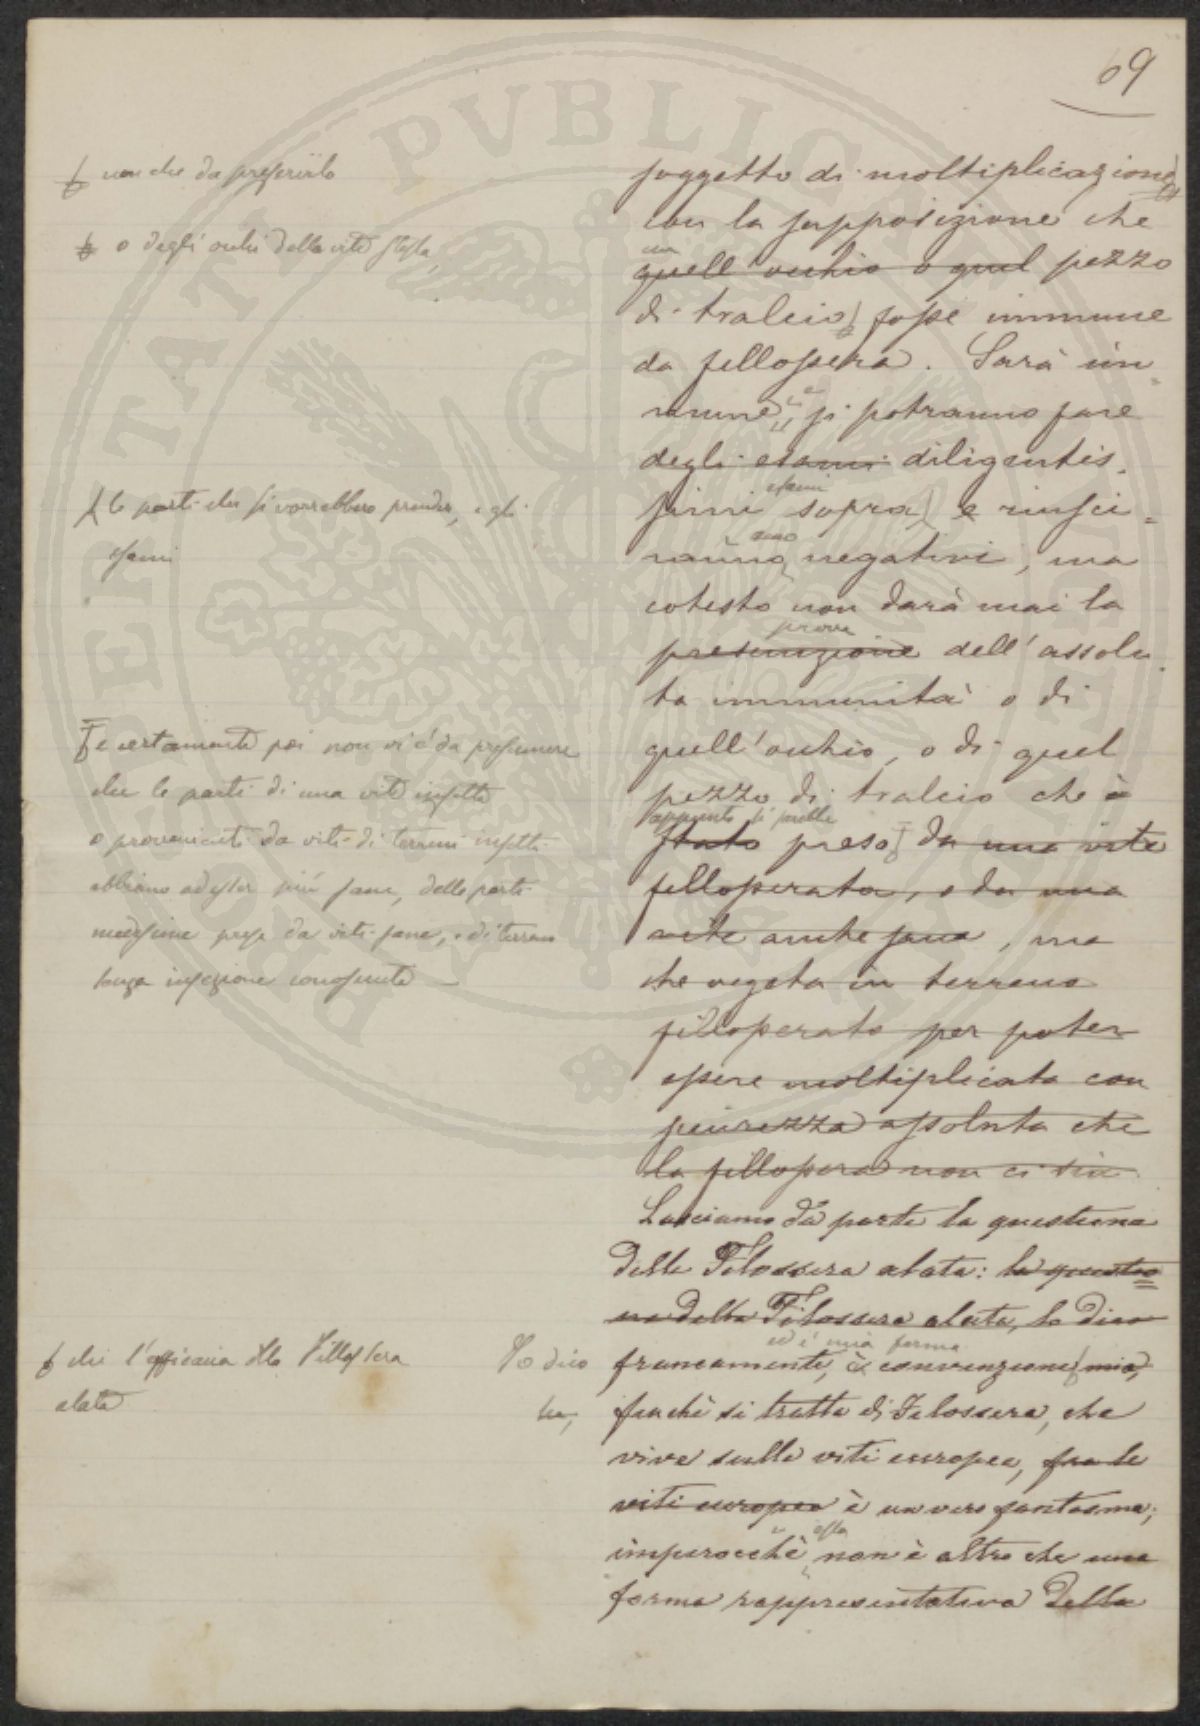 69
non che da preferirlo
o degli occhi della vite stessa,
le parti che si vorrebbero prender, e gli
esami
e certamente poi non vi è da presumere
che le parti di una vite infetta
o provenienti da viti di terreni infetti
abbiano ad esser più sane, delle parti
medesime prese da viti sane, o di terreno
senza infezione conosciuta —
che l'efficacia della Fillossera
alata
soggetto di moltiplicazione
con la supposizione che
un
quell'occhio o quel pezzo
di tralcio fosse immune
da fillossera. Sarà im=
mune, e si potranno fare
degli esami diligentis=
esami
simi sopra e riusci=
anno
ranno negativi, ma
cotesto non darà mai la
prova
presunzione dell'assolu=
ta immunità o di
quell'occhio, o di quel
pezzo di tralcio che è
appunto si sarebbe
stato preso da una vite
fillosserata, o da una
vite anche sana, ma
che vegeta in terreno
fillosserato per poter
essere moltiplicato con
sicurezza assoluta che
la fillossera non ci sia
Lasciamo da parte la questione
della Filossera alata: la questio=
ne della Filossera alata, lo dico
ed è mia ferma
Io dico francamente, è convenzione mia,
finchè si tratta di Filossera, che
vive sulle viti europee, fra le
viti europee è un vero fantasma;
essa
imperocchè non è altro che una
forma rappresentativa della